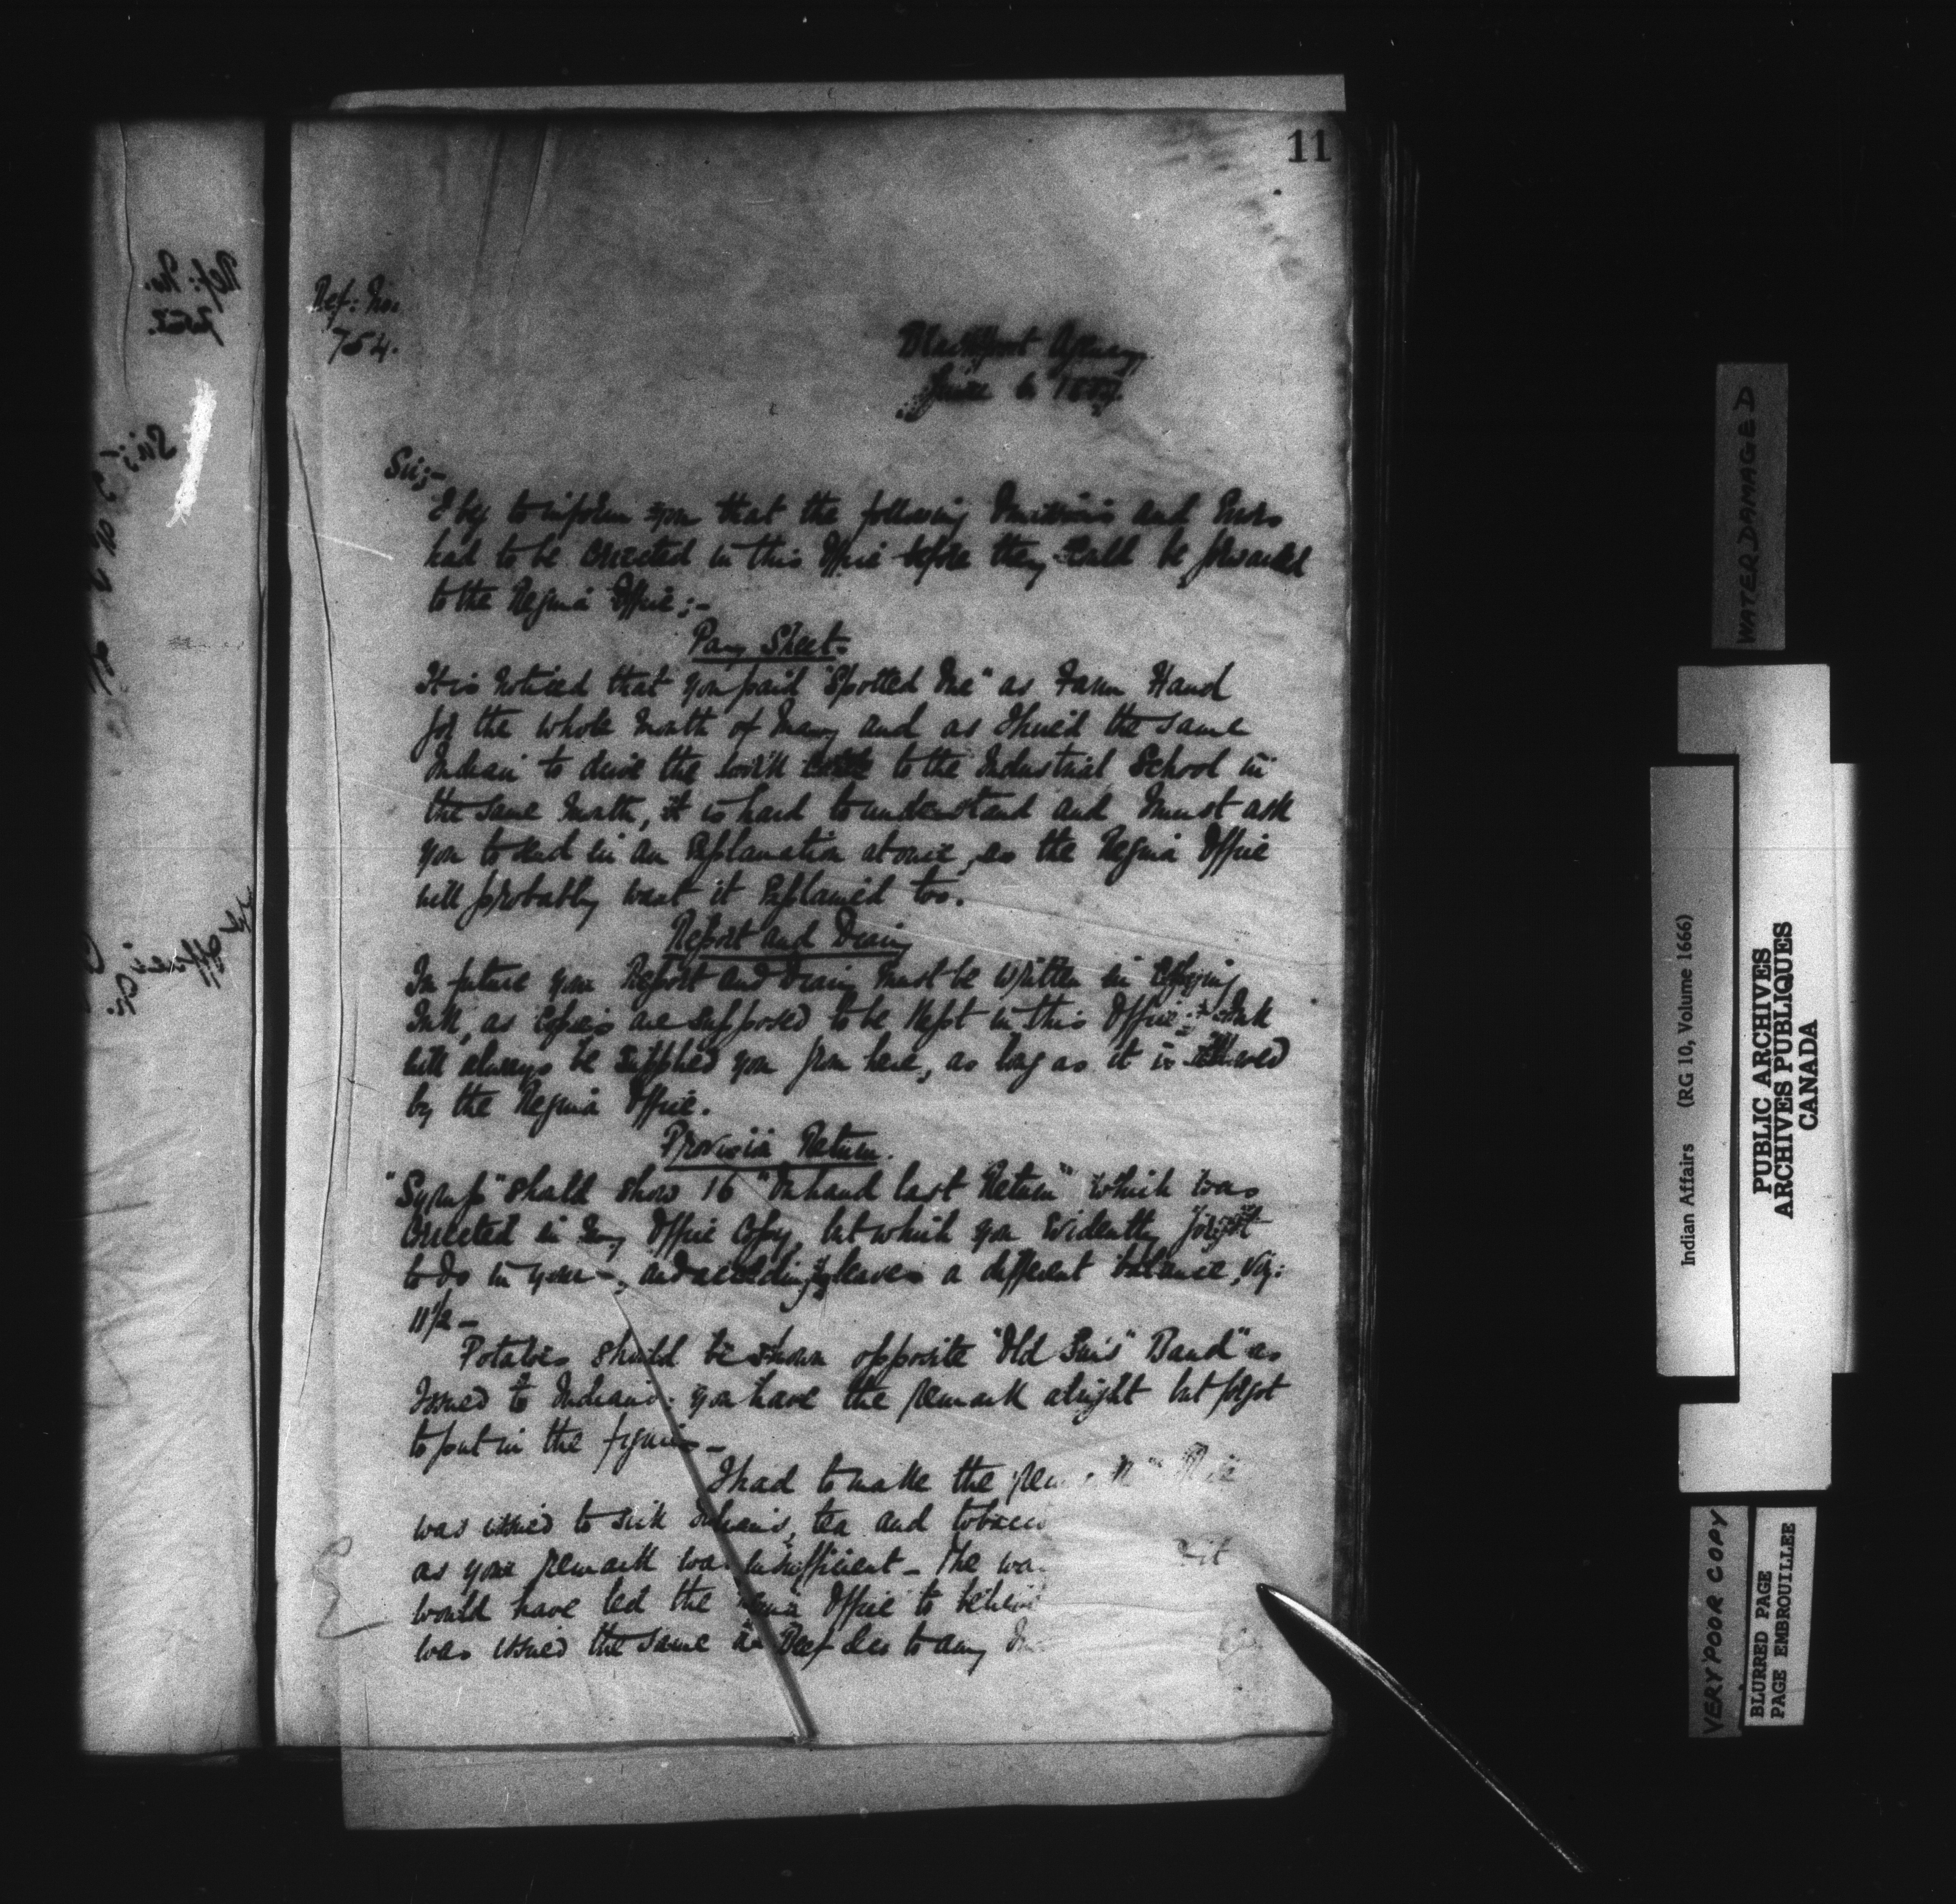 11
Ref: No.
754.
Blackfoot Agency,
June 6 1887.
Sir;-
I beg to inform you that the following Omissions and Errors
had to be corrected in this Office before they could be forwarded
to the Regina Office;-
Pay Sheet.
It is noticed that you paid "Spotted One" as Farm Hand
for the whole month of May and as I hired the same
Indian to drive the milk to the Industrial School in
the same month, it is hard to understand and must ask
you to send in an Explanation at once, as the Regina Office
will probably want it Explained too.
Report and Diary
In future your Report and Diary must be written in Copying
Ink, as Copies are supposed to be kept in this Office; Ink
will always be supplied you from here, as long as it is allowed
by the Regina Office.
Provision Return.
"Syrup" should show 16 "On hand last Return" which was
corrected in my Office Copy, but which you Evidently forgot
to do in yours, and accordingly leaves a different balance, viz:
11 1/2 -
Potatoes should be shown opposite "Old Sun's" Band" as
Issued to Indians. you have the remark alright but forgot
to put in the figures -
I had to make the
was issued to sick Indians, tea and tobacco
as your remark was insufficient - The
would have led the Regina Office to believe
was issued the same as Beef &c to any
WATER DAMAGED
Indian Affairs (RG 10, Volume 1666)
PUBLIC ARCHIVES
ARCHIVES PUBLIQUES
CANADA
VERY POOR COPY
BLURRED PAGE
PAGE EMBROUILLEE